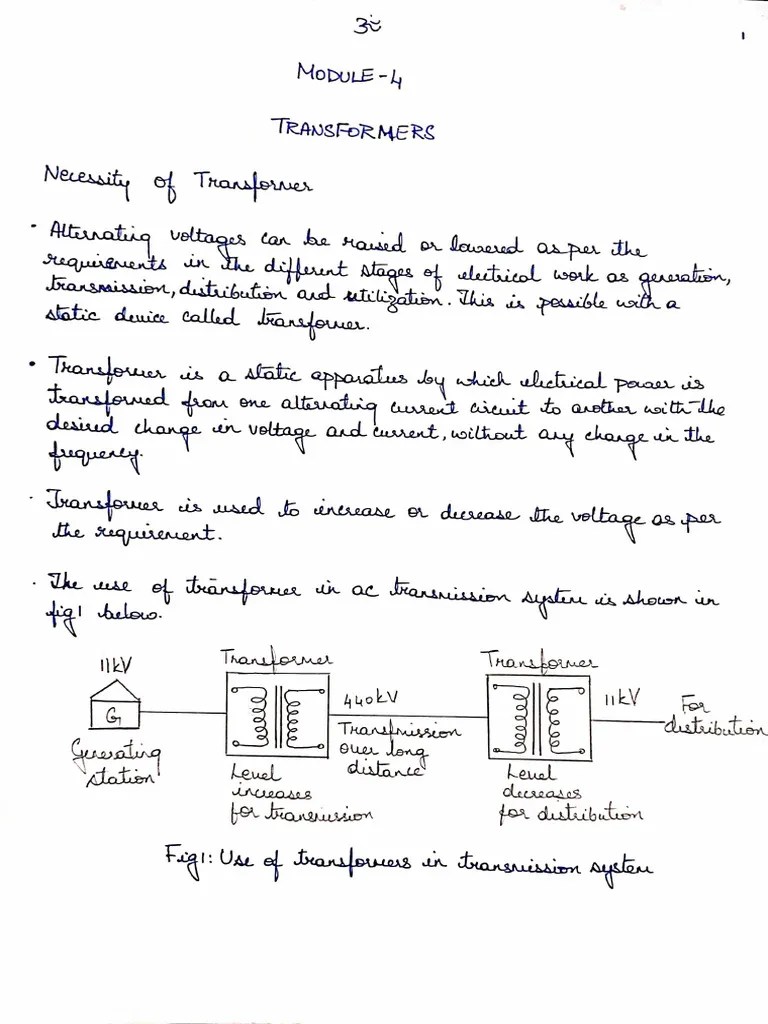 3
1
MODULE-4
TRANSFORMERS
Necessity of Transformer
• Alternating voltages can be raised or lowered as per the
requirements in the different stages of electrical work as generation,
transmission, distribution and utilization. This is possible with a
static device called transformer.
• Transformer is a static apparatus by which electrical power is
transformed from one alternating current circuit to another with the
desired change in voltage and current, without any change in the
frequency.
• Transformer is used to increase or decrease the voltage as per
the requirement.
• The use of transformer in ac transmission system is shown in
fig1 below.
11kV
G
Generating
station
Transformer
Level
increases
for transmission
440kV
Transmission
over long
distance
Transformer
Level
decreases
for distribution
11kV
For
distribution
Fig1: Use of transformers in transmission system